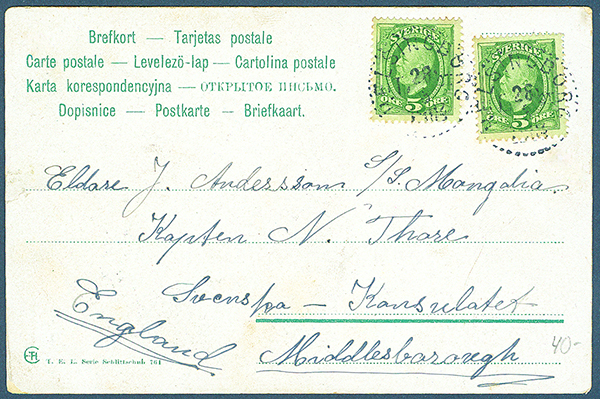 Brefkort — Tarjetas postale
Carte postale — Levelező-lap — Cartolina postale
Karta korespondencyjna — ОТКРЫТОЕ ПИСЬМО.
Dopisnice — Postkarte — Briefkaart.
SVERIGE
5 ÖRE
SVERIGE
5 ÖRE
HELSINGBORG
28
Eldare J. Andersson S/S. Mongolia.
Kapten N. Thore
Svenska – Konsulatet
England
Middlesborough
T. E. L. Serie Schlittschuh 761
40-